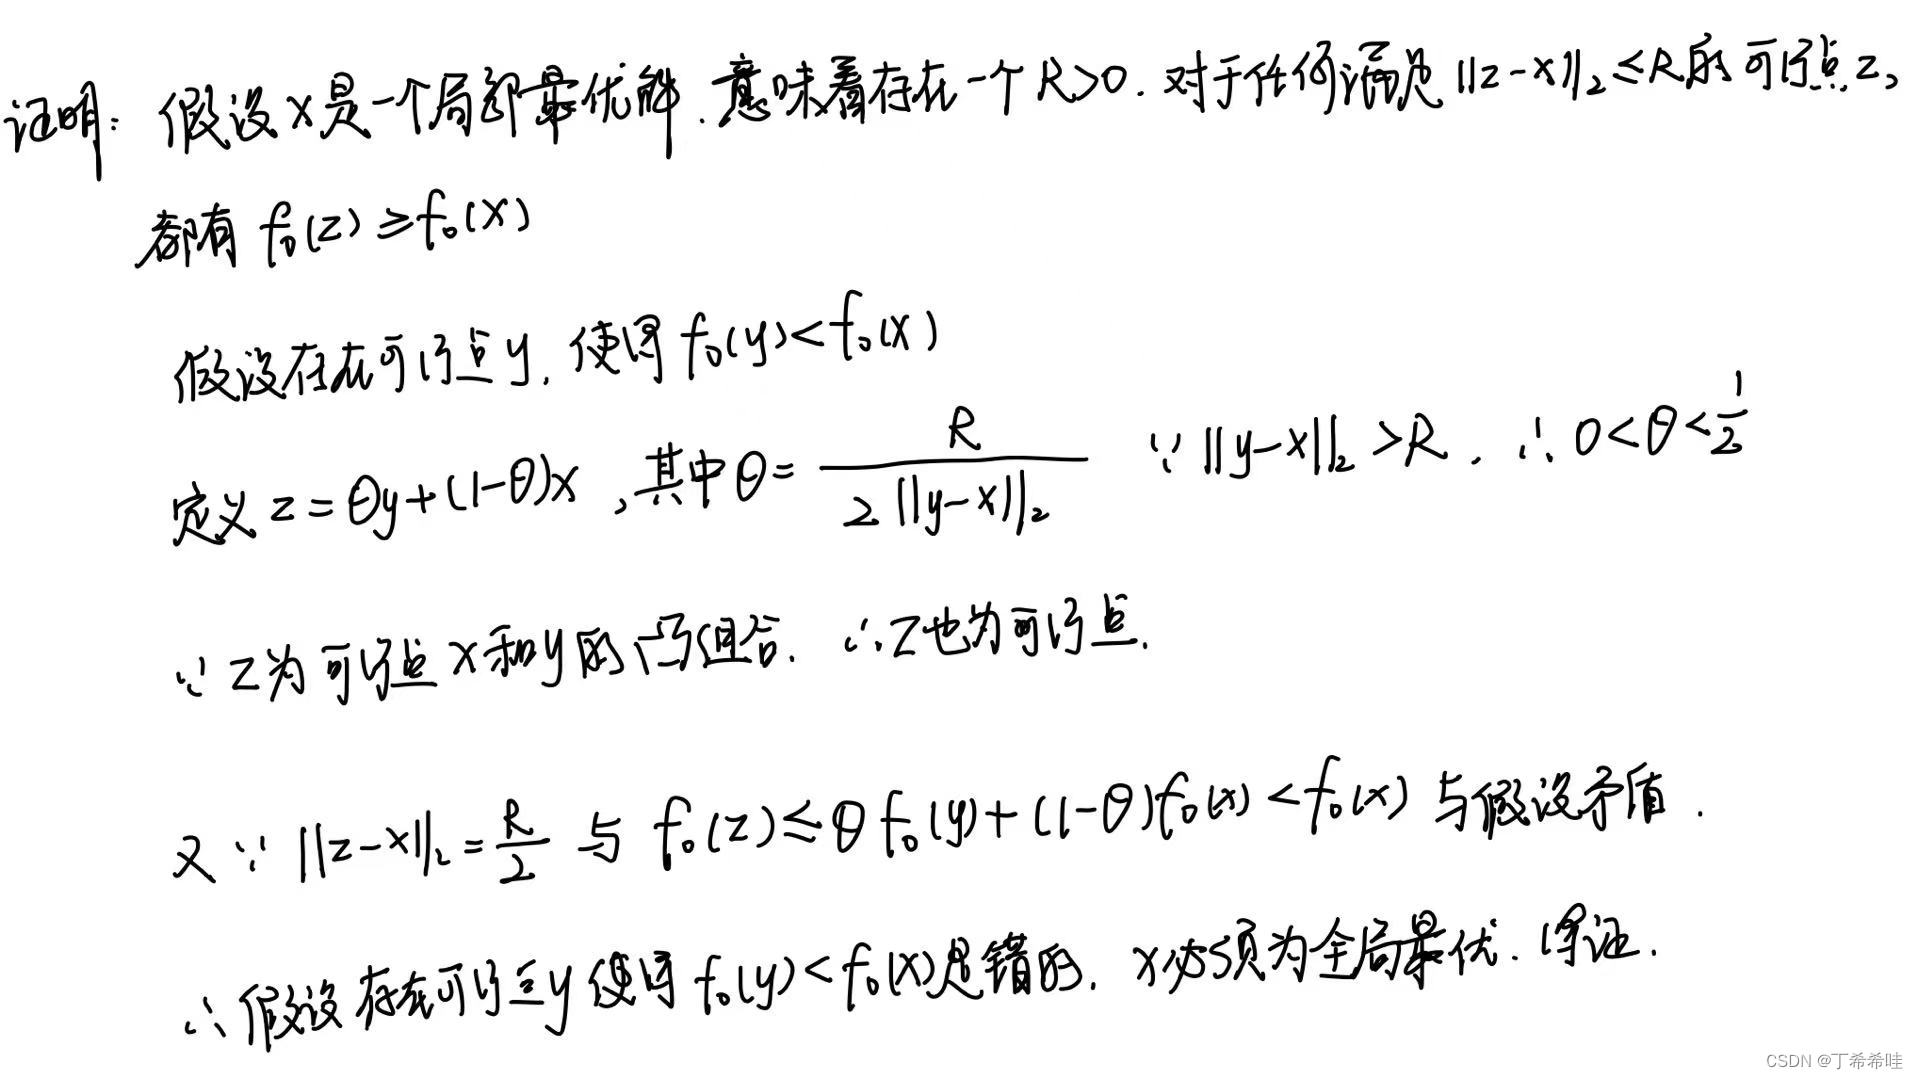 证明: 假设 x 是一个局部最优解. 意味着存在一个 R>0. 对于任何满足 ||z-x||₂ ≤ R 的可行点 z,
都有 f₀(z) ≥ f₀(x)
假设存在可行点 y, 使得 f₀(y) < f₀(x)
定义 z = θy + (1-θ)x , 其中 θ = R / (2||y-x||₂) ∵ ||y-x||₂ > R . ∴ 0 < θ < 1/2
∵ z 为可行点 x 和 y 的凸组合. ∴ z 也为可行点.
又 ∵ ||z-x||₂ = R/2 与 f₀(z) ≤ θf₀(y) + (1-θ)f₀(x) < f₀(x) 与假设矛盾 .
∴ 假设存在可行点 y 使得 f₀(y) < f₀(x) 是错的. x 必须为全局最优. 得证.
CSDN @丁希希哇